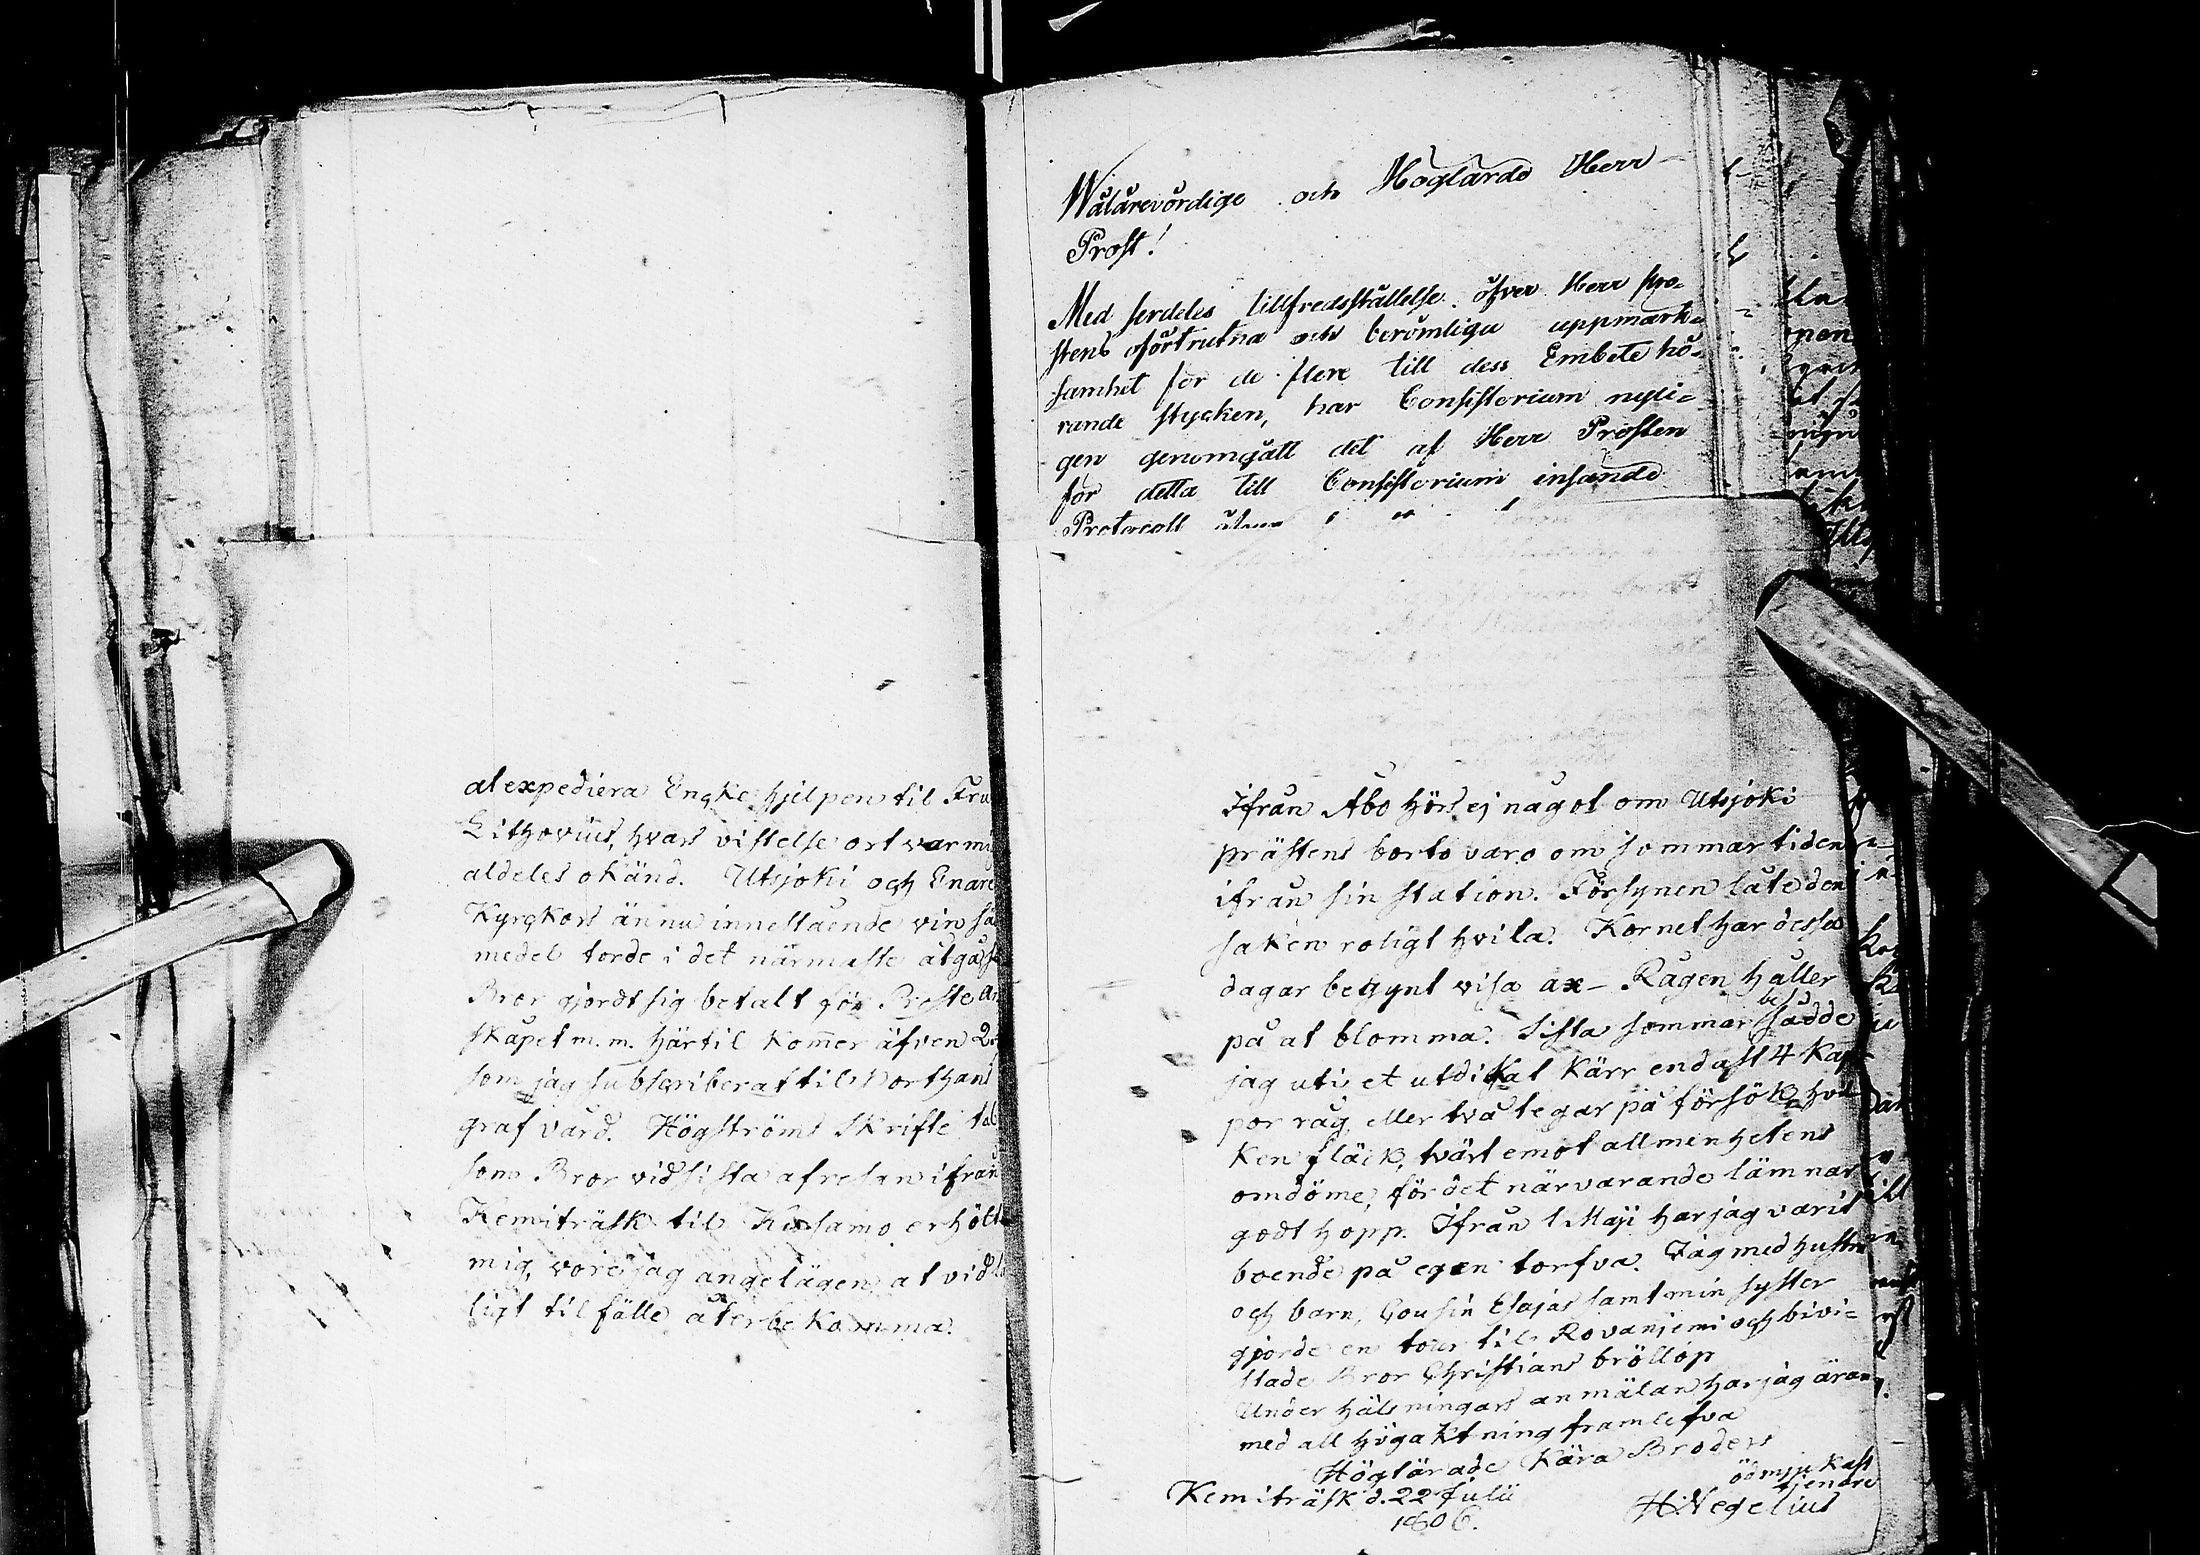 at expediera Enke hjelpen til Fru
Lithovius, hvars vistelse ort var mig
aldeles okänd. Utsjoki och Enare
Kyrckors ännu innestående vin sä
medel torde i det närmaste åtgå
Bror gjordt sig betalt för Proste
skapet m. m. Härtil kom̄er äfven 2
som jag subscriberat til Porthans
graf vård. Högströms Skrifte tal
som Bror vid sista afresan ifrån
Kemiträsk til Kusamo erhölt
mig, vore jag angelägen at vid
ligt tilfälle återbekomma.
Wälärevördige och Höglärde Herr
Prost!
Med serdeles tillfredsställelse öfver Herr Pro-
stens oförtrutna och berömliga uppmärk-
samhet för de flere till dess Embete hö-
rande stycken, har Consistorium nyli-
gen genomgått det af Herr Prosten
för detta till Consistorium insände
Protocoll
Ifrån Åbo hörs ej något om Utsjoki
prästens borto varo om sommar tiden
ifrån sin station. Försynen låte den
saken roligt hvila. Kornet har dessa
dagar begynt visa ax - Rågen håller
på at blomma. Sista sommar besådde
jag uti et utdikat Kärr endast 4 Kap-
por råg eller två tegar på försök, hvil
ken fläck, tvärt emot allmenhetens
omdöme, för det närvarande lämnar
godt hopp. Ifrån 1 Maji har jag varit
boende på egen torfva. Jag med hustru
och barn, Cousin Esajas samt min syster
gjorde en tour til Rovanjemi och bivi-
stade Bror Christians bröllop
Under hälsningars anmälan har jag äran
med all högaktning framlefva
Höglärade Kära Broders
ödmjukast
tjenare
Kemiträsk d. 22 Julii
H. Wegelius
1806.